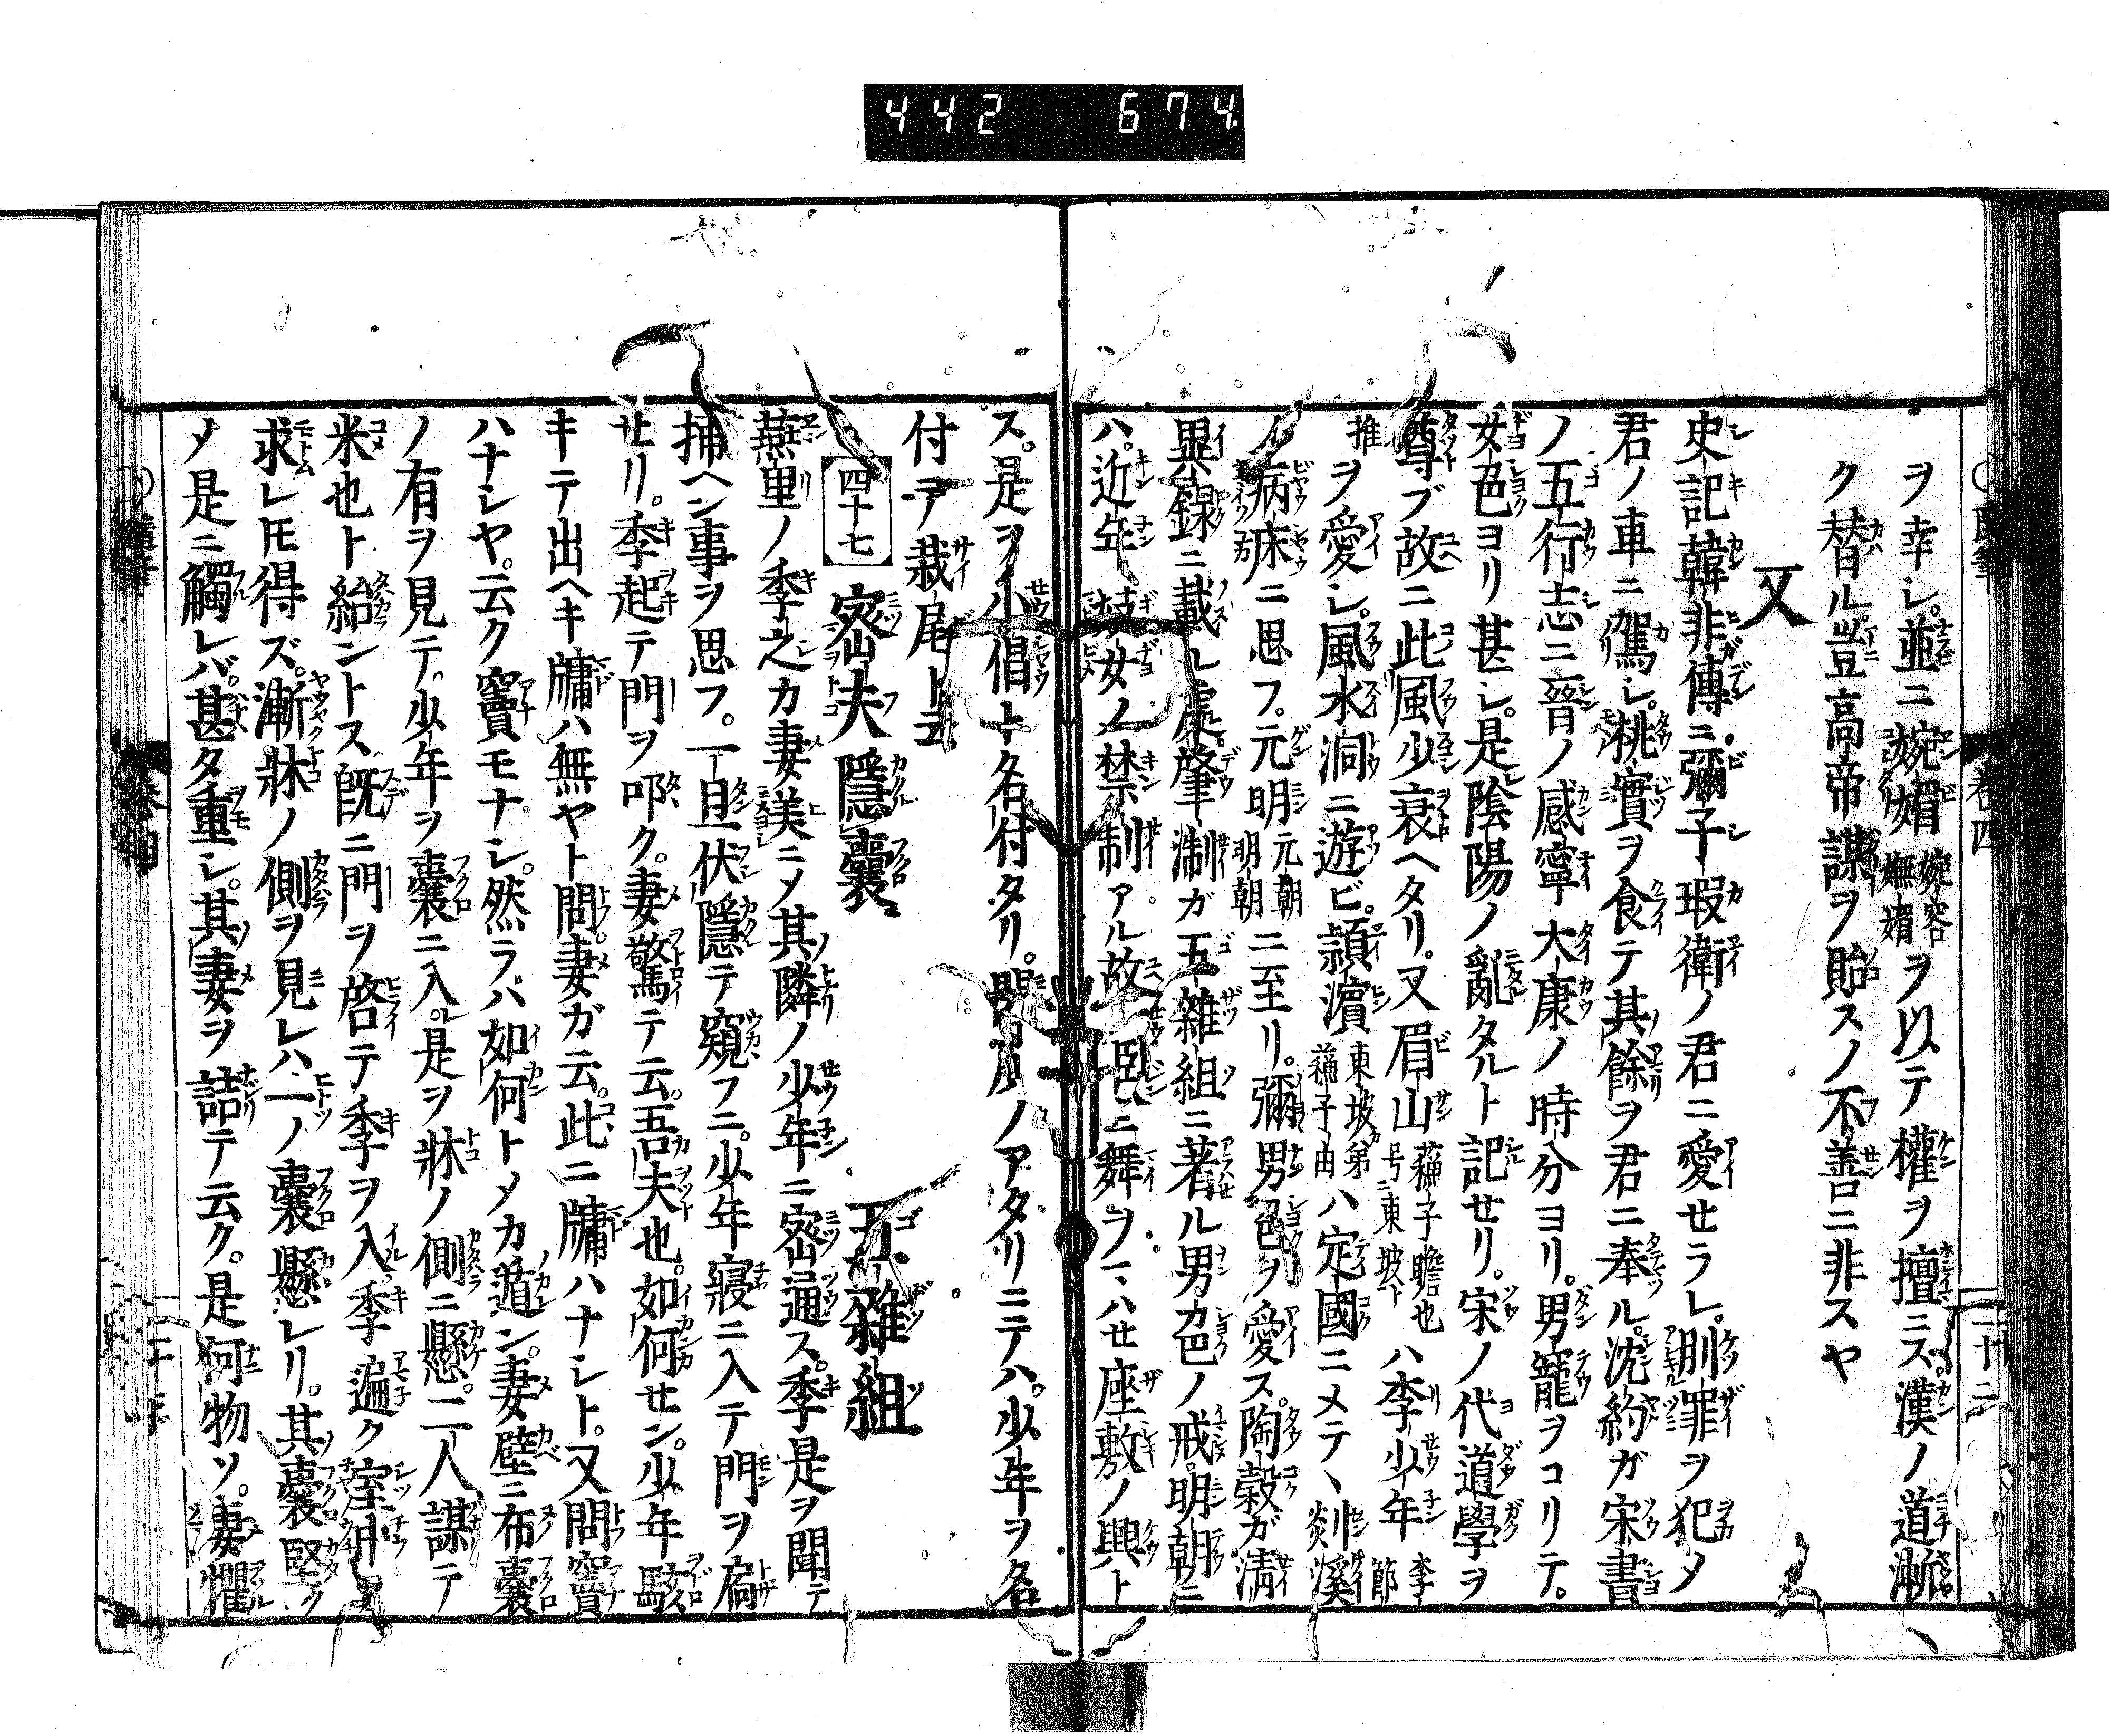 442 674
ヲ幸シ。並ニ婉媚婉容嫵媚ヲ以テ權ヲ擅ニス。漢ノ道漸
ク替ル。豈高帝謀ヲ貽スノ不善ニ非スヤ
又
史記韓非傳ニ彌子瑕衛ノ君ニ愛セラレ。刖罪ヲ犯メ
君ノ車ニ駕シ。桃實ヲ食テ其餘ヲ君ニ奉ル。沈約ガ宋書
ノ五行志ニ晉ノ感寧大康ノ時分ヨリ。男寵ヲコリテ。
女色ヨリ甚シ。是陰陽ノ亂タルト記セリ。宋ノ代道學ヲ
尊ブ故ニ此風少衰ヘタリ。又眉山蘓子瞻也号東坡ト ハ李少年李節
推ヲ愛シ。風水洞ニ遊ビ。頴濵東坡カ弟蘓子由ハ定國ニメテヽ剡溪
ノ病床ニ思フ。元明元朝明朝ニ至リ。彌男色ヲ愛ス。陶穀ガ淸
異錄ニ載ル處。肇淛ガ五雜組ニ著ル男色ノ戒。明朝ニ
ハ。近年妓女ノ禁制アル故。ニ舞ヲマハせ座敷ノ興ト
ス。是ヲ小倡ト名付タリ。ノアタリニテハ。少年ヲ名
付テ栽尾ト云
四十七 密夫隱囊 五雜組
燕里ノ季之カ妻美ニメ其隣ノ少年ニ密通ス。季是ヲ聞テ
捕ヘン事ヲ思フ。一旦伏隱テ窺フニ。少年寢ニ入テ門ヲ扃
せリ。季起テ門ヲ叩ク。妻驚テ云。吾夫也。如何せン。少年駭
キテ出ヘキ牖ハ無ヤト問。妻ガ云。此ニ牖ハナシト。又問竇
ハナシヤ。云ク竇モナシ。然ラバ如何トメカ遁ン。妻壁ニ布囊
ノ有ヲ見テ。少年ヲ囊ニ入。是ヲ牀ノ側ニ懸。二人謀テ
米也ト紿ントス。既ニ門ヲ啓テ季ヲ入。季遍ク室中ヲ
求レモ得ズ。漸牀ノ側ヲ見レハ一ノ囊懸レリ。其囊堅ク
メ是ニ觸レバ。甚タ重シ。其妻ヲ詰テ云ク。是何物ソ。妻懼
卷四
二十二